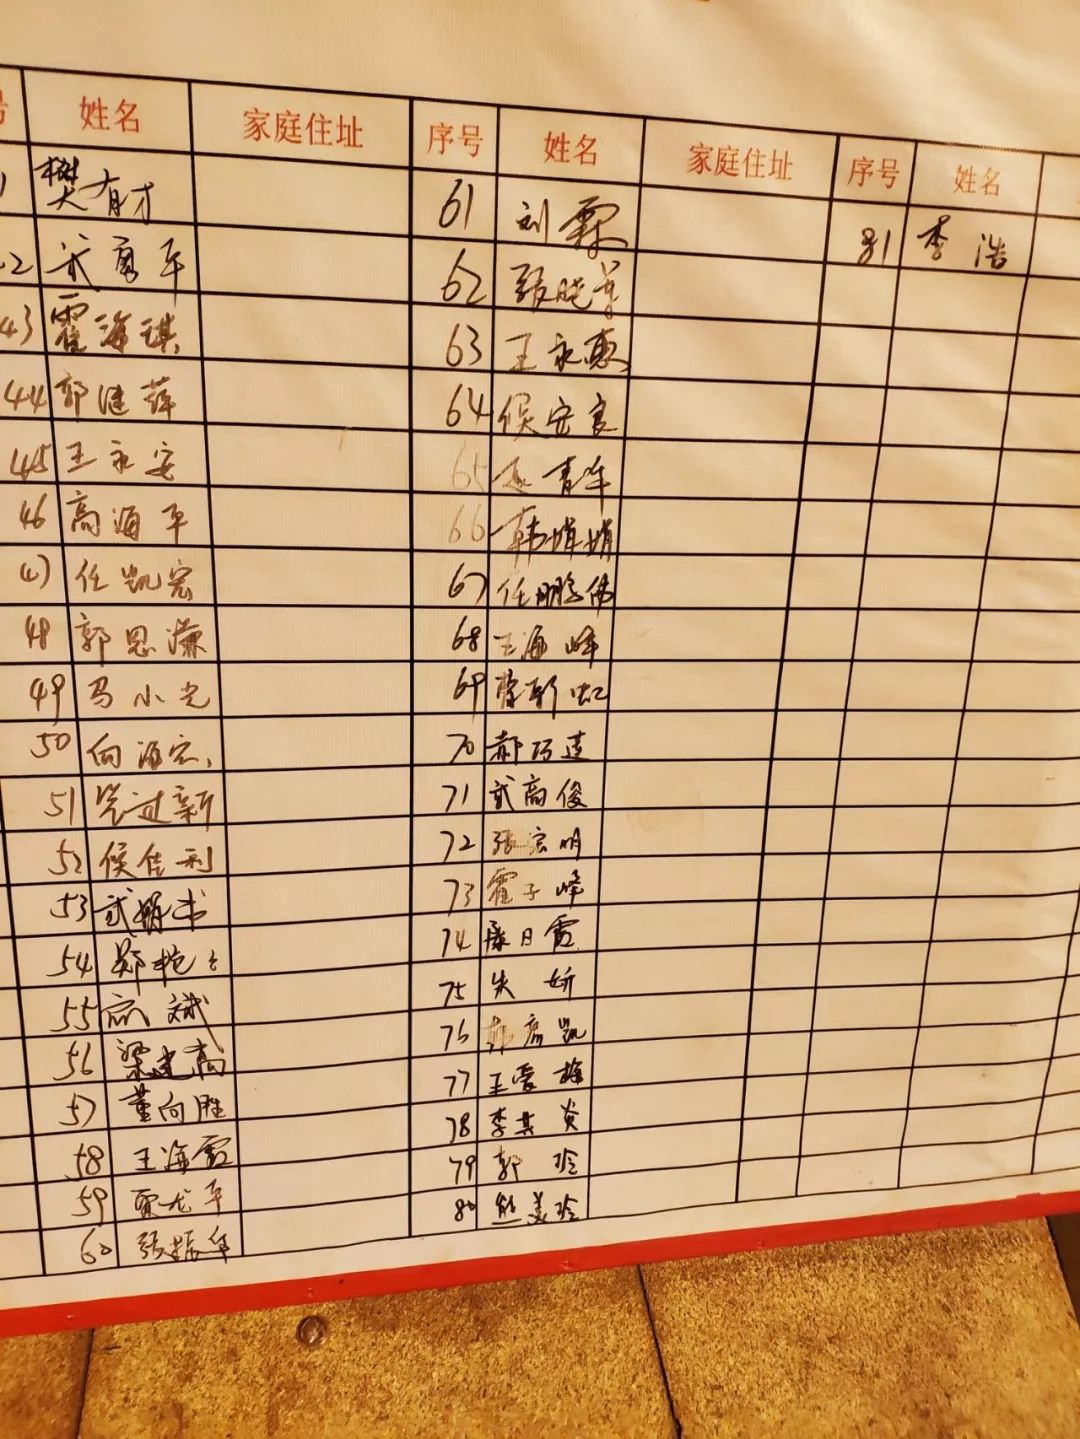 号 姓名 家庭住址 序号 姓名 家庭住址 序号 姓名
1 樊有才 61 刘霖 81 李浩
42 武勇平 62
43 霍海琪 63 王永惠
44 郭继萍 64 侯安良
45 王永安 65 赵青年
46 高海平 66 韩娟娟
47 任凯宏 67 任鹏伟
48 郭恩濂 68 王海峰
49 马小光 69
50 向海宏 70 郝巧莲
51 党过新 71 武高俊
52 侯佳利 72 张宏明
53 武 73 霍子峰
54 郑艳 74 康日霞
55 斌 75 朱娇
56 梁建高 76 韩彦凯
57 董向胜 77 王爱梅
58 王海霞 78 李其炎
59 贾龙平 79 郭玲
60 张振华 80 熊美玲